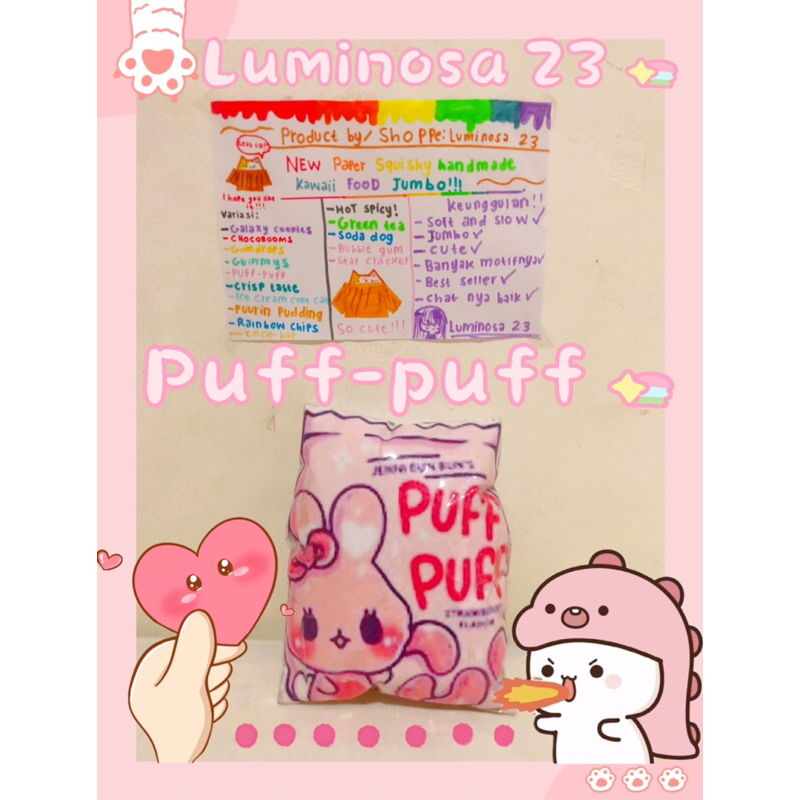 Luminosa 23
Product by/ Shoppe: Luminosa 23
NEW Paper Squishy handmade
Kawaii FOOD Jumbo!!!
I hope you like it!!!
Variasi:
- Galaxy cookies
- CHOCOROOMS
- Gumdrops
- Gummys
- PUFF-PUFF
- Crisp taste
- Ice cream coni cat
- Puurin Pudding
- Rainbow Chips
- KOCO-bar
- HOT spicy!
- Green tea
- Soda dog
- Bubble gum
- Star cracker
So cute!!!
Keunggulan!!
- Soft and slow ✓
- Jumbo ✓
- cute ✓
- Banyak motifnya ✓
- Best seller ✓
- Chat nya baik ✓
Luminosa 23
Puff-puff
BUN BUN'S
PUFF
PUFF
STRAWBERRY
FLAVOR